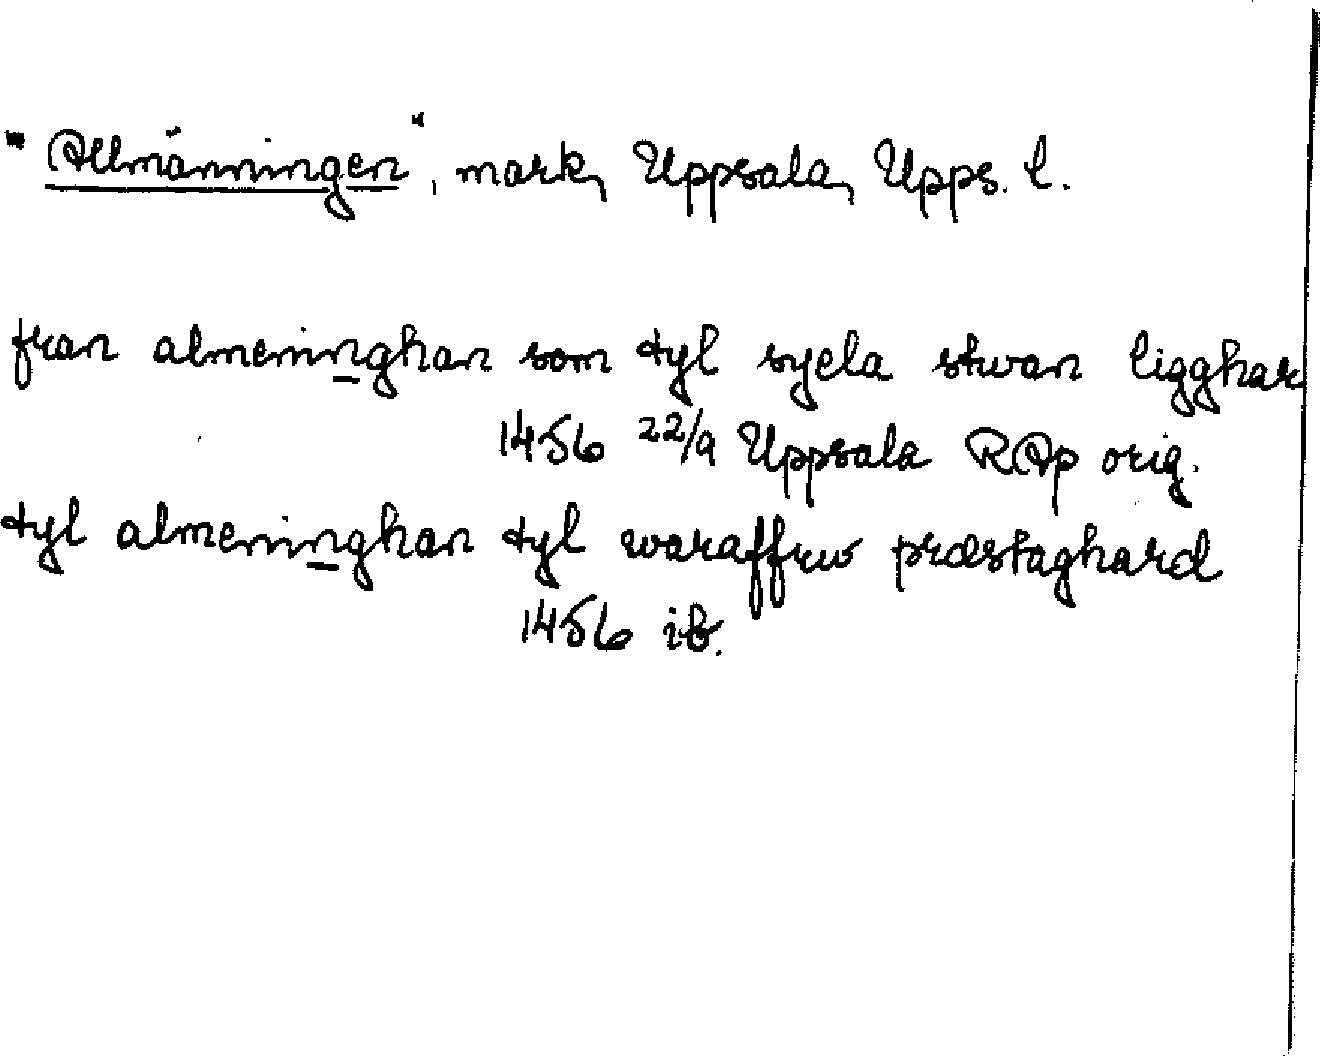 "Allmänningen", mark, Uppsala, Upps. l.
fran almeninghan som tyl syela stwan ligghar
1456 22/9 Uppsala RAp orig.
tyl almeninghan tyl waraffrw præstaghard
1456 ib.